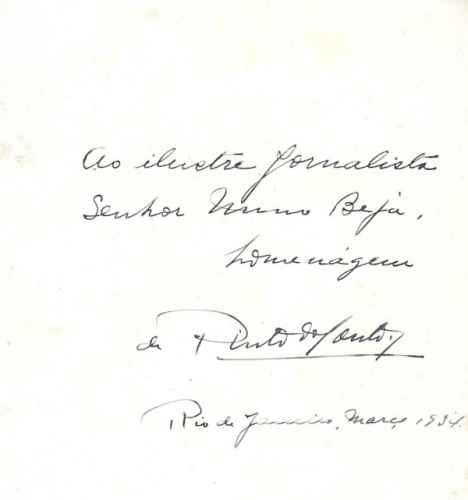 Ao ilustre Jornalista
Senhor Nuno Beja,
homenágem
de Pinto do Couto
Rio de Janeiro, Março 1934.